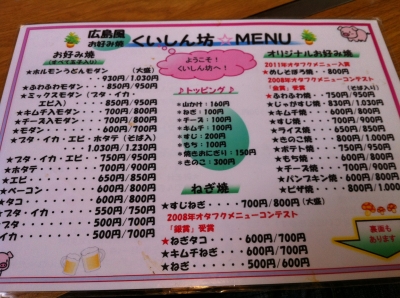 広島風
お好み焼
くいしん坊☆MENU
お好み焼
(すべて玉子入り)
★ホルモンうどんモダン (大盛)
・・930円/1.030円
★ふわふわモダン・・850円/950円
★ミックスモダン(ブタ・イカ・
エビ入)・・・・850円/950円
★キムチ入モダン・・700円/800円
★チーズ入モダン・・700円/800円
★モダン・・・・・・600円/700円
★ブタ・イカ・エビ・ホタテ(そば入)
・・・・・・1.030円/1.230円
★ブタ・イカ・エビ・750円/950円
★ホタテ・・・・・・700円/900円
★エビ・・・・・・・650円/850円
★ベーコン・・・・・600円/800円
★タコ・・・・・・・600円/800円
ブタ・イカ・・・・550円/750円
ブタ・・・・・・・500円/700円
イカ・・・・・・・500円/700円
ようこそ!
くいしん坊へ!
♪トッピング♪
★山かけ:160円
★ねぎ:100円
★チーズ:100円
★キムチ:100円
★すじ:200円
★もち:100円
★焼きおにぎり:150円
★きのこ:300円
ねぎ焼
★すじねぎ・・・700円/800円(大盛)
2008年オタフクメニューコンテスト
「銀賞」受賞
★ねぎタコ・・・・600円/700円
★キムチねぎ・・・600円/700円
★ねぎ・・・・・・500円/600円
オリジナルお好み焼
2011年オタフクメニュー入賞
★めしそぼろ焼・・800円
2008年オタフクメニューコンテスト
「金賞」受賞 (そば入り)
★ふわふわ焼・・・750円/950円
★じゃがすじ焼・・830円/1.030円
★キムチ焼・・・・600円/800円
★すじ焼・・・・・700円/900円
★ライス焼・・・・650円/850円
★きのこ焼・・・・800円/1.000円
★ポテト焼・・・・750円/950円
★もち焼・・・・・600円/800円
★チーズ焼・・・・700円/900円
★パンプキン焼・・600円/800円
★ピザ焼・・・・・800円/1.000
裏面も
あります